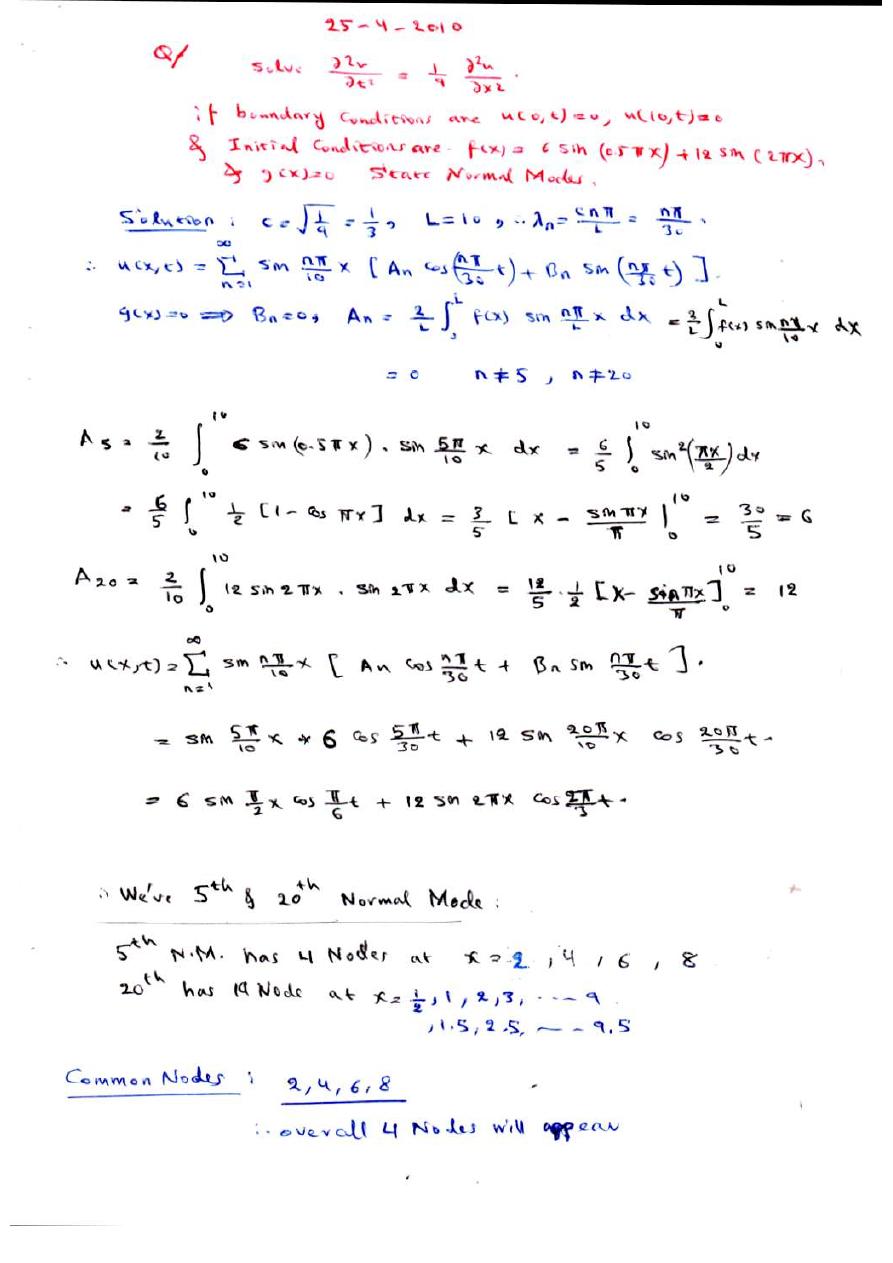 25-4-2010
Q/ Solve ∂²u/∂t² = 1/9 ∂²u/∂x².
if boundary Conditions are u(0,t)=0, u(10,t)=0
& Initial Conditions are f(x) = 6 sin (0.5πx) + 12 sin (2πx),
& g(x)=0 State Normal Modes.
Solution: c = √(1/9) = 1/3, L=10, ∴ λn = cnπ/L = nπ/30.
∴ u(x,t) = ∑_{n=1}^{∞} sin nπ/10 x [An cos(nπ/30 t) + Bn sin(nπ/30 t)].
g(x)=0 ⇒ Bn=0, An = 2/L ∫_0^L f(x) sin nπ/L x dx = 2/L ∫_0^L f(x) sin nπ/10 x dx
= 0 n≠5, n≠20
A5 = 2/10 ∫_0^10 6 sin(0.5πx). sin 5π/10 x dx = 6/5 ∫_0^10 sin²(πx/2) dx
= 6/5 ∫_0^10 1/2 [1-cos πx] dx = 3/5 [x - sin πx/π |_0^10 = 30/5 = 6
A20 = 2/10 ∫_0^10 12 sin 2πx . sin 2πx dx = 12/5 . 1/2 [x- sin πx/π]_0^10 = 12
∴ u(x,t) = ∑_{n=1}^{∞} sin nπ/10 x [An cos nπ/30 t + Bn sin nπ/30 t].
= sin 5π/10 x * 6 cos 5π/30 t + 12 sin 20π/10 x cos 20π/30 t.
= 6 sin π/2 x cos π/6 t + 12 sin 2πx cos 2π/3 t.
∴ We've 5th & 20th Normal Mode:
5th N.M. has 4 Nodes at x = 2, 4, 6, 8
20th has 19 Node at x = 1/2, 1, 2, 3, ---- 9
, 1.5, 2.5, -- 9.5
Common Nodes: 2, 4, 6, 8
∴ overall 4 Nodes will appear